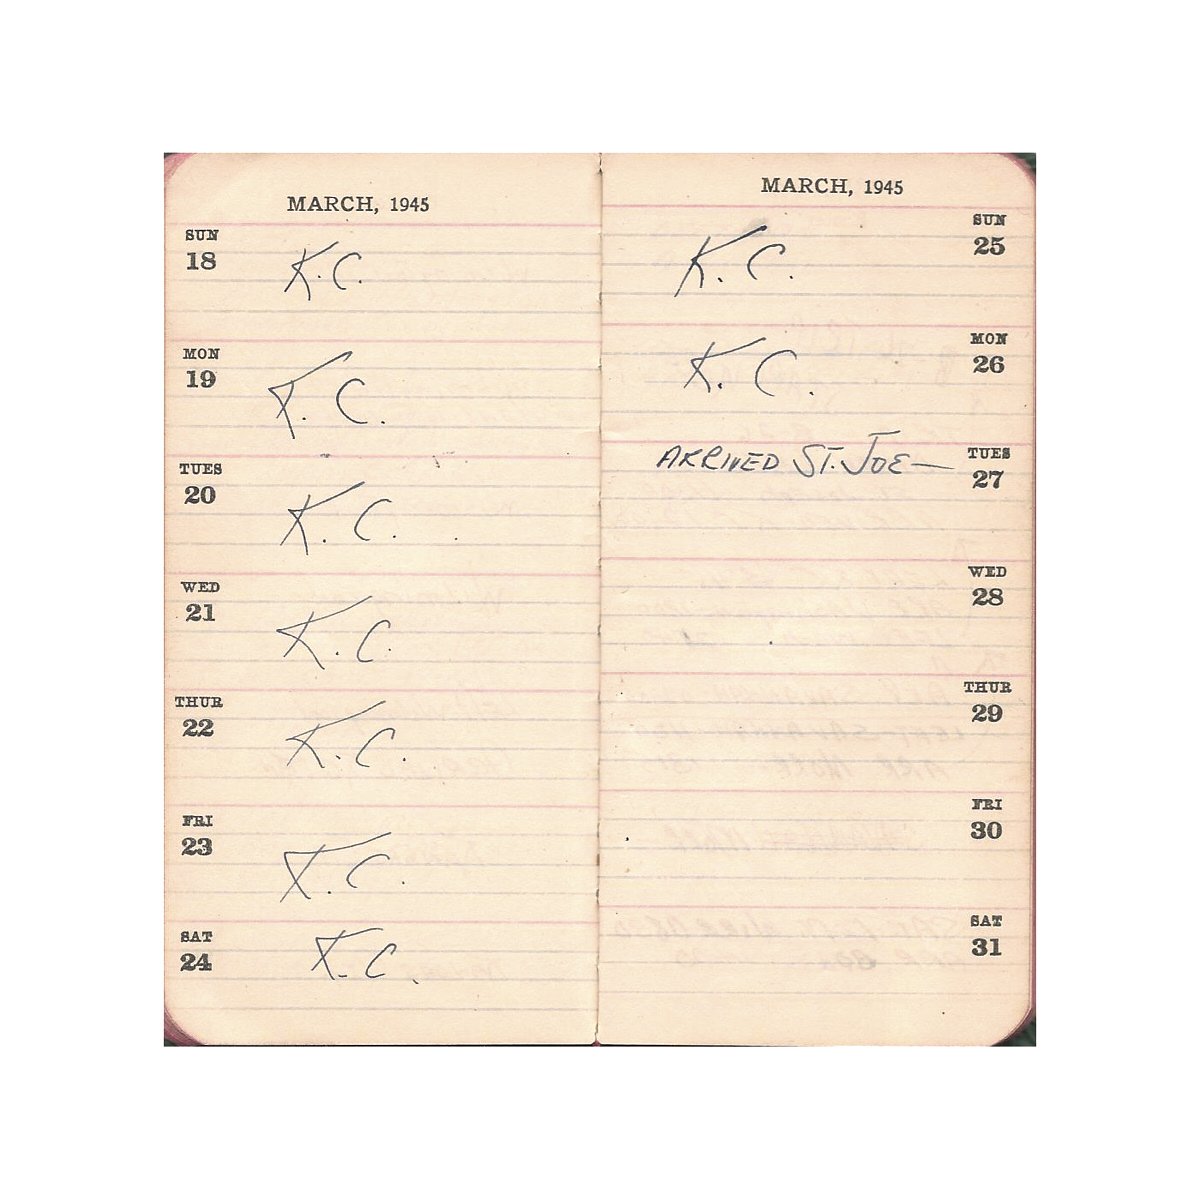 MARCH, 1945
SUN
18
K.C.
MON
19
K.C.
TUES
20
K.C.
WED
21
K.C.
THUR
22
K.C.
FRI
23
K.C.
SAT
24
K.C.
MARCH, 1945
SUN
25
K.C.
MON
26
K.C.
TUES
27
ARRIVED ST. JOE—
WED
28
THUR
29
FRI
30
SAT
31